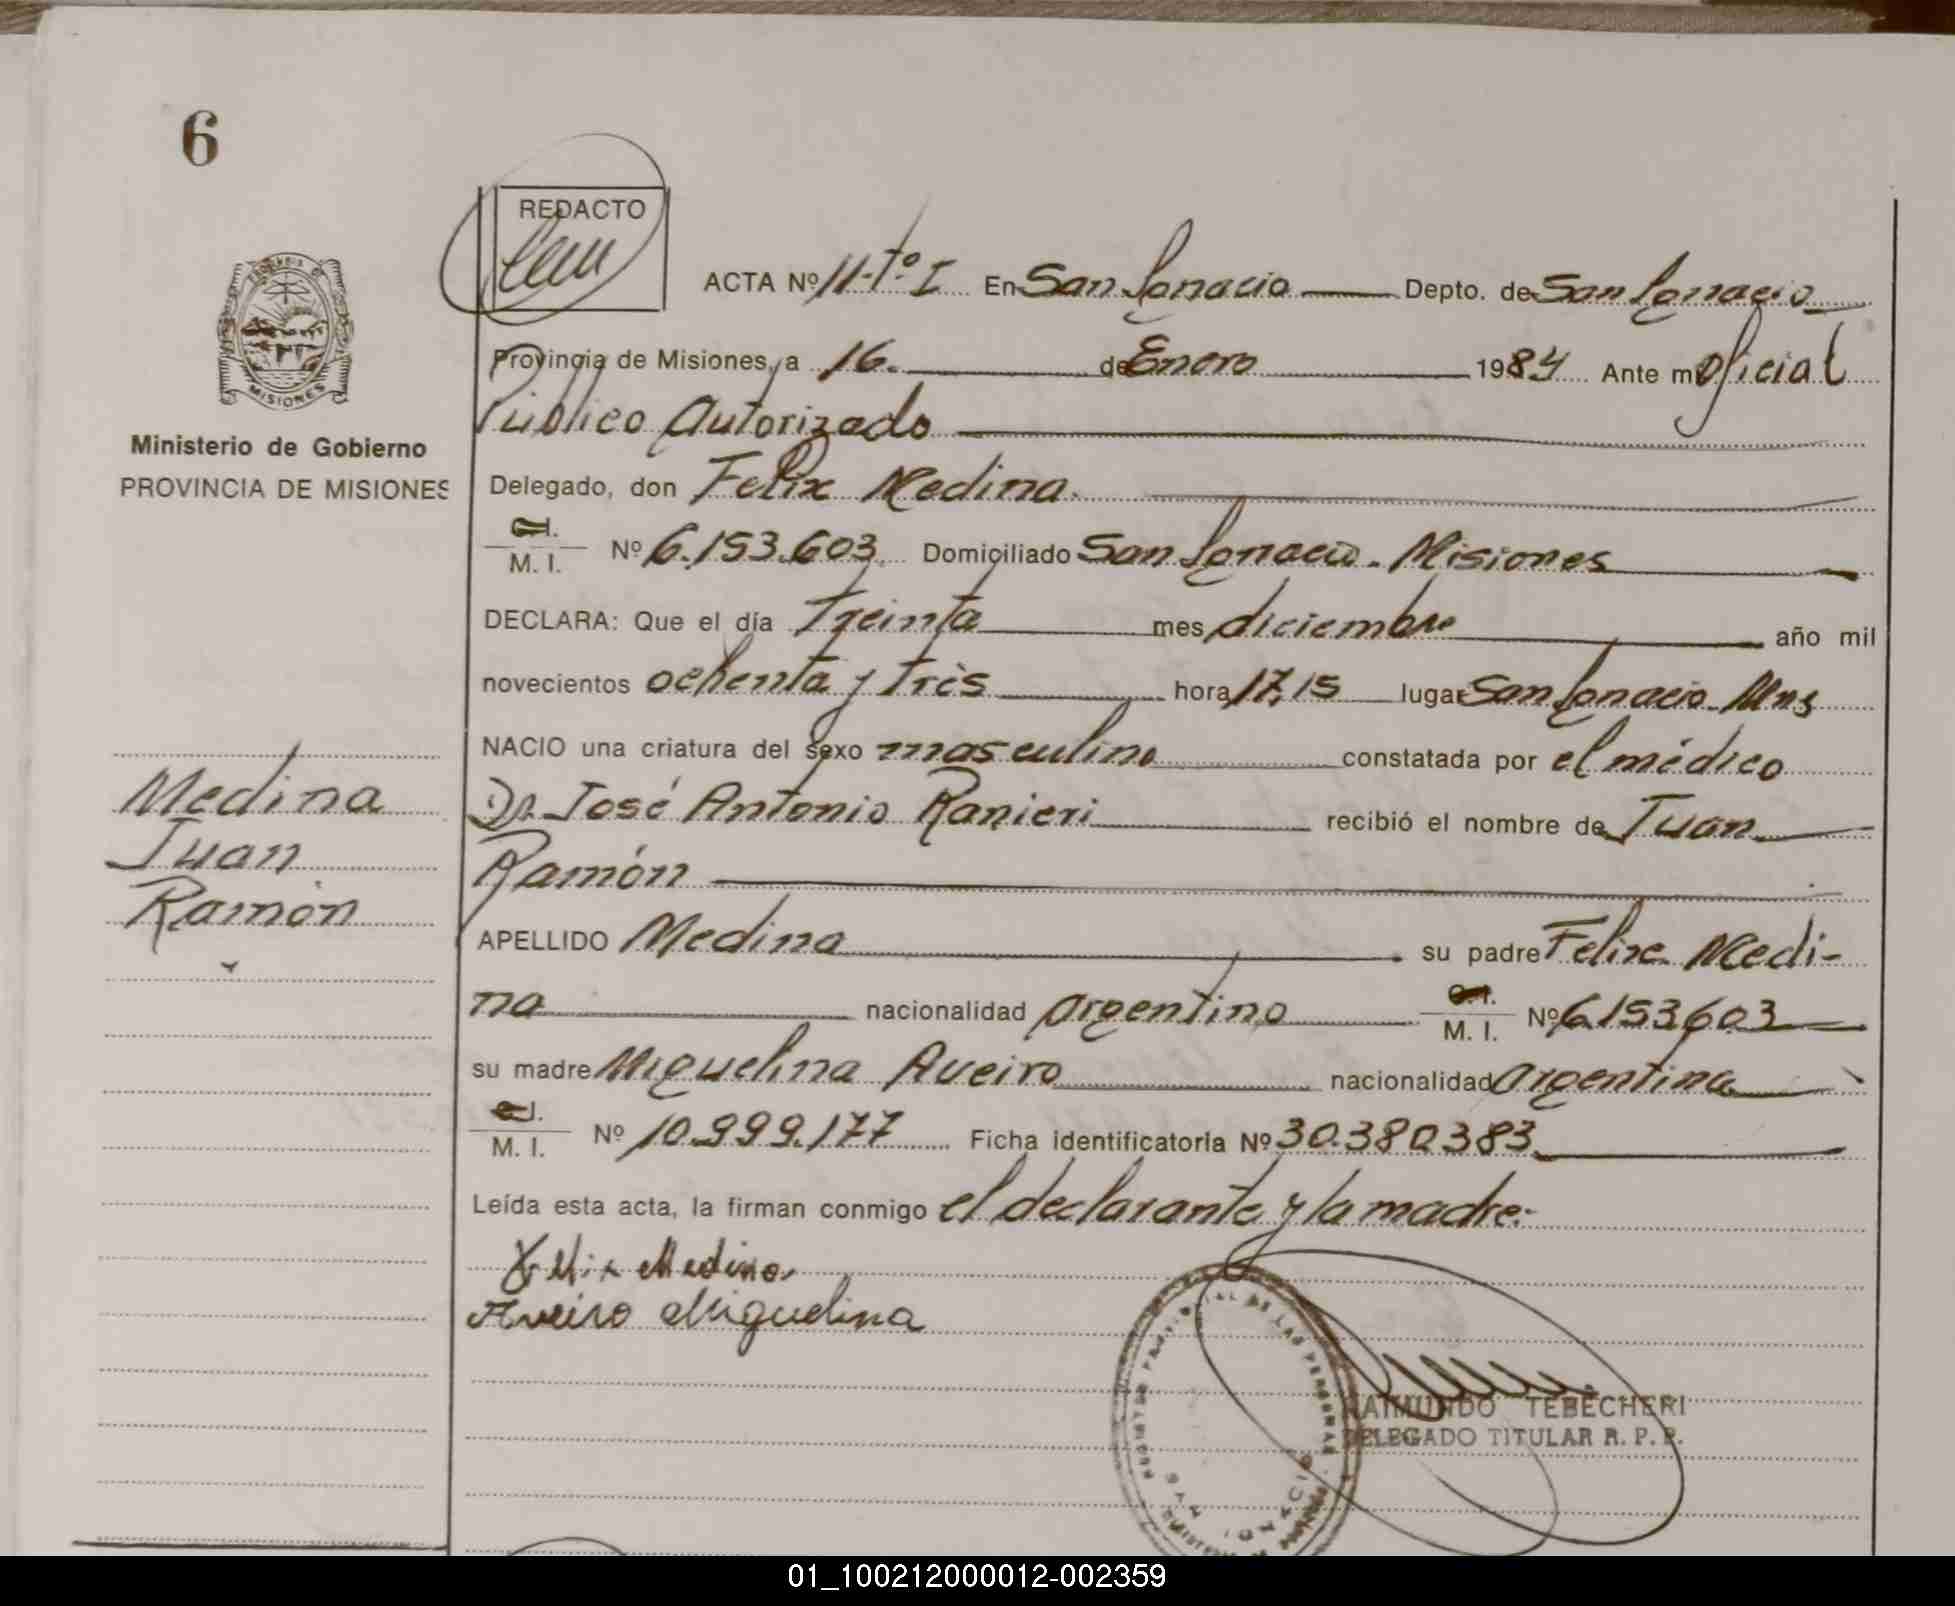 6
REDACTO
ACTA Nº 11-Tº I En San Ignacio Depto. de San Ignacio
Provincia de Misiones, a 16. de Enero 1984 Ante mi Oficial
Público Autorizado
MISIONES
Ministerio de Gobierno
PROVINCIA DE MISIONES
Delegado, don Felix Medina.
C.I.
M. I. Nº 6.153.603 Domiciliado San Ignacio. Misiones
DECLARA: Que el día Treinta mes diciembre año mil
novecientos ochenta y Tres hora 17,15 lugar San Ignacio. Mns
NACIO una criatura del sexo masculino constatada por el médico
Dr. José Antonio Ranieri recibió el nombre de Juan
Ramón
Medina
Juan
Ramón
APELLIDO Medina su padre Felix Medi-
na nacionalidad argentino C.I.
M. I. Nº 6.153.603
su madre Miguelina Aveiro nacionalidad argentina
C.I.
M. I. Nº 10.999.177 Ficha identificatoria Nº 30.380383
Leída esta acta, la firman conmigo el declarante y la madre:-
Felix Medina
Aveiro Miguelina
RAIMUNDO TEBECHERI
DELEGADO TITULAR R. P. P.
DE LAS PERSONAS
SAN IGNACIO
01_100212000012-002359